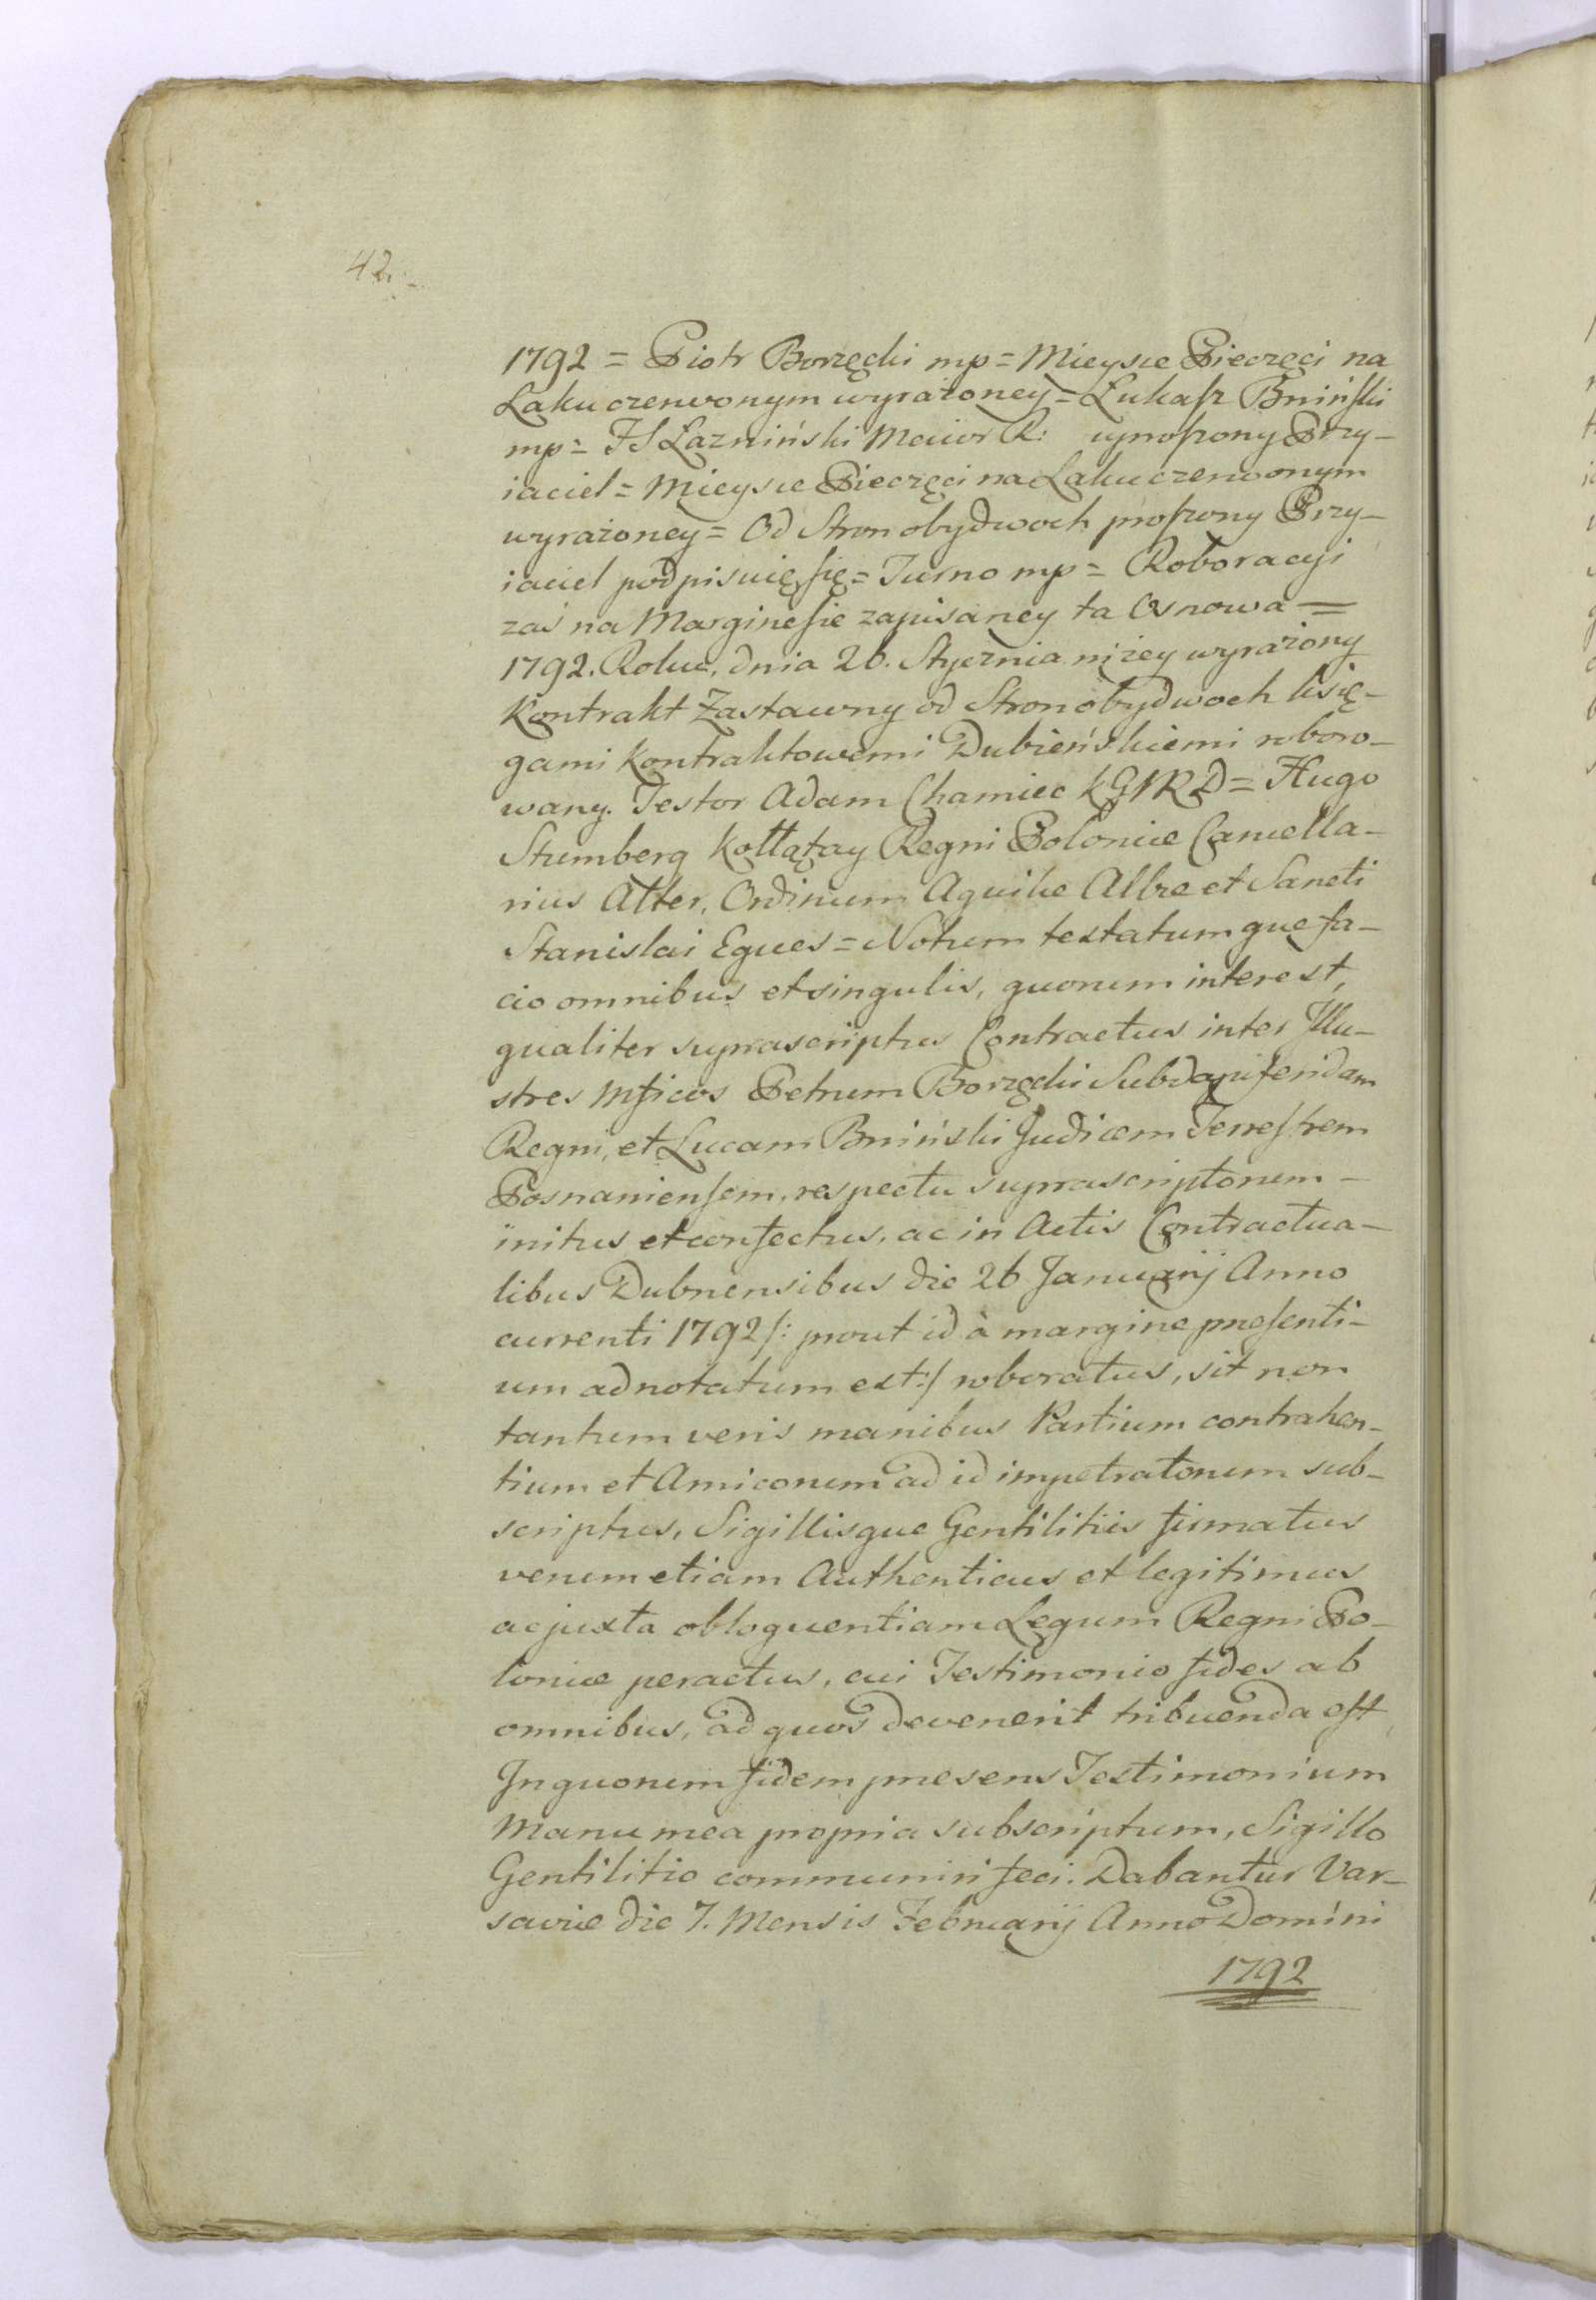 42.
1792 = Piotr Borzęcki mp = Mieysce Pieczęci na
Laku czerwonym wyrażoney = Łukasz Bniński
mp = JS Łazniński Maior R: uproszony Przy-
iaciel = Mieysce Pieczęci na Laku czerwonym
wyrażoney = Od Stron obydwoch proszony Przy-
iaciel podpisuię się = Turno mp = Roboracyi
zaś na Marginesie zapisaney ta Osnowa =
1792. Roku, dnia 26. Stycznia niżey wyrażony
Kontrakt Zastawny od Stron obydwoch księ-
gami Kontraktowemi Dubieńskiemi roboro-
wany. Testor Adam Chamiec KGNRD = Hugo
Stumberg Kołłątay Regni Poloniæ Cancella-
rius Alter, Ordinum Aquilæ Albæ et Sancti
Stanislai Eques = Notum testatumque fa-
cio omnibus et singulis, quorum interest,
qualiter suprascriptus Contractus inter Illu-
stres Mficos Petrum Borzęcki Subdapiferidam
Regni, et Lucam Bniński Judicem Terrestrem
Posnaniensem, respectu suprascriptorum -
initus et confectus, ac in Actis Contractua-
libus Dubnensibus die 26 Januarij Anno
currenti 1792 /: prout id à margine præsenti-
um adnotatum est :/ roboratus, sit non
tantum veris manibus Partium contrahen-
tium et Amicorum ad id impetratorum sub-
scriptus, Sigillisque Gentilitiis firmatus
verum etiam Authenticus et legitimus
ac juxta obloquentiam Legum Regni Po-
loniæ peractus, cui Testimonio fides ab
omnibus, ad quos devenerit tribuenda est,
In quorum fidem præsens Testimonium
Manu mea propria subscriptum, Sigillo
Gentilitio communiri feci. Dabantur Var-
saviæ die 7. Mensis Februarij Anno Domini
1792